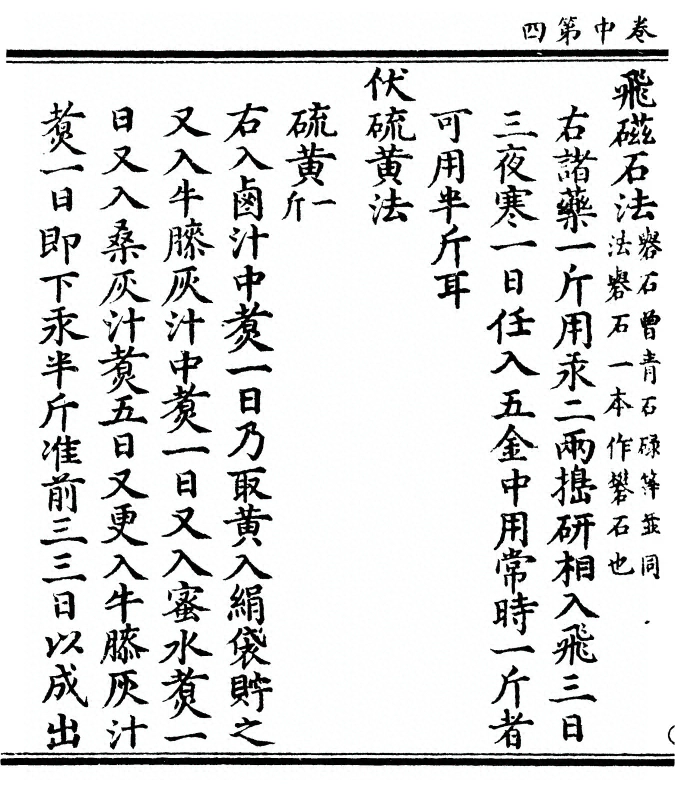 卷中第四
飛磁石法礜石曾青石碌等並同法礜石一本作礬石也
右諸藥一斤用汞二兩搗研相入飛三日
三夜寒一日任入五金中用常時一斤者
可用半斤耳
伏硫黃法
硫黃一斤
右入鹵汁中煑一日乃取黃入絹袋貯之
又入牛膝灰汁中煑一日又入蜜水煑一
日又入桑灰汁煑五日又更入牛膝灰汁
煑一日即下汞半斤准前三三日以成出